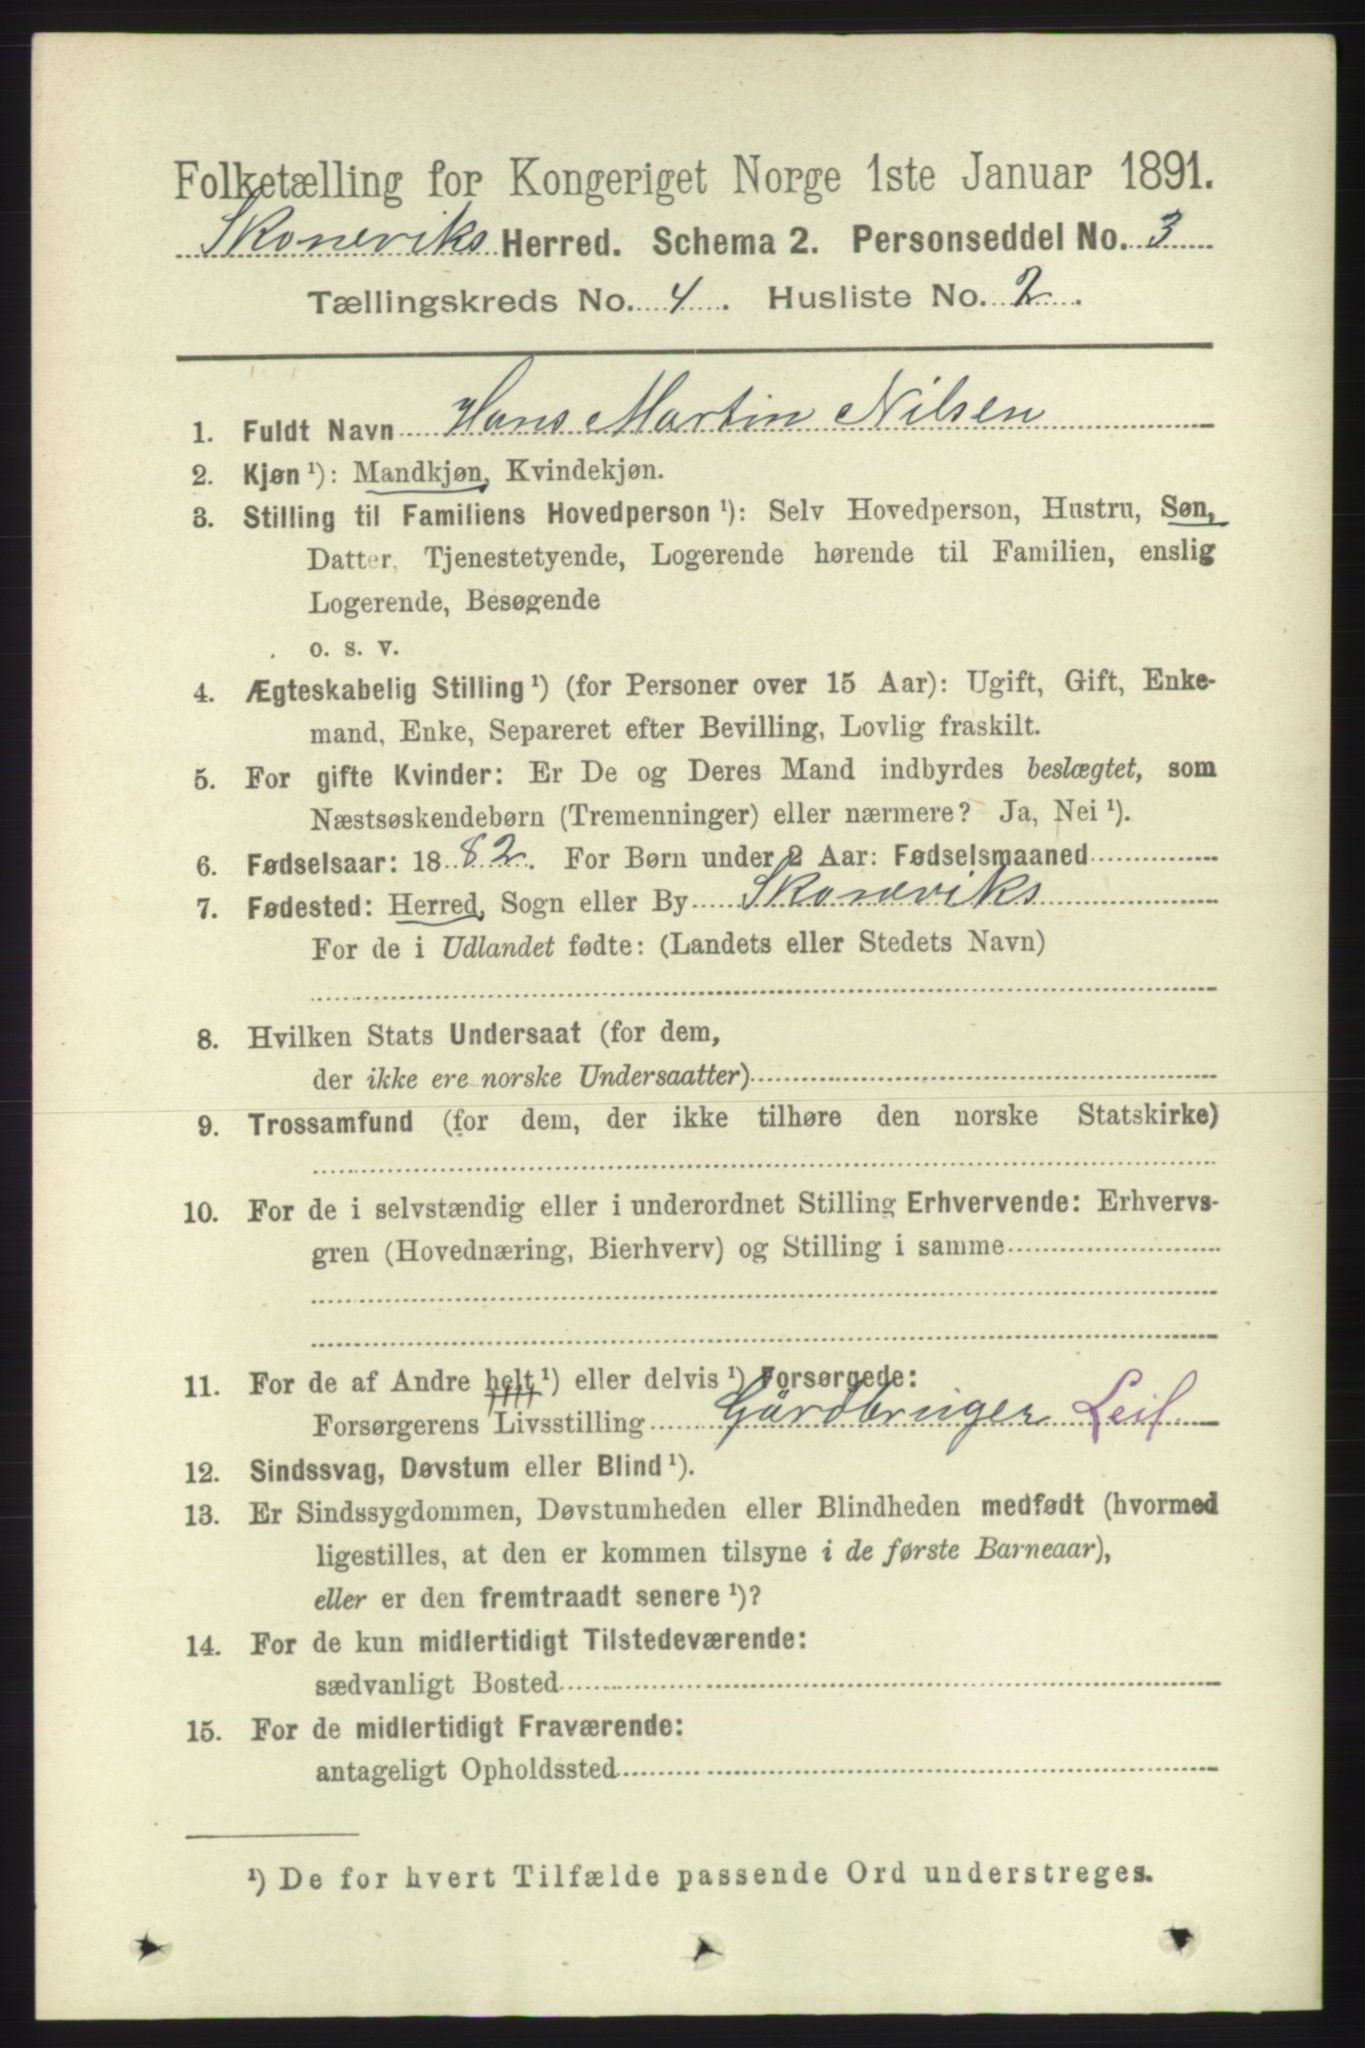 Folketælling for Kongeriget Norge 1ste Januar 1891.
Skoneviks Herred. Schema 2. Personseddel No. 3
Tællingskreds No. 4. Husliste No. 2.
1. Fuldt Navn Hans Martin Nilsen
2. Kjøn ¹): Mandkjøn, Kvindekjøn.
3. Stilling til Familiens Hovedperson ¹): Selv Hovedperson, Hustru, Søn,
Datter, Tjenestetyende, Logerende hørende til Familien, enslig
Logerende, Besøgende
o. s. v.
4. Ægteskabelig Stilling ¹) (for Personer over 15 Aar): Ugift, Gift, Enke-
mand, Enke, Separeret efter Bevilling, Lovlig fraskilt.
5. For gifte Kvinder: Er De og Deres Mand indbyrdes beslægtet, som
Næstsøskendebørn (Tremenninger) eller nærmere? Ja, Nei ¹).
6. Fødselsaar: 1882. For Børn under 2 Aar: Fødselsmaaned
7. Fødested: Herred, Sogn eller By Skoneviks
For de i Udlandet fødte: (Landets eller Stedets Navn)
8. Hvilken Stats Undersaat (for dem,
der ikke ere norske Undersaatter)
9. Trossamfund (for dem, der ikke tilhøre den norske Statskirke)
10. For de i selvstændig eller i underordnet Stilling Erhvervende: Erhvervs-
gren (Hovednæring, Bierhverv) og Stilling i samme
11. For de af Andre helt ¹) eller delvis ¹) Forsørgede:
Forsørgerens Livsstilling Gårdbruger Leil
12. Sindssvag, Døvstum eller Blind ¹).
13. Er Sindssygdommen, Døvstumheden eller Blindheden medfødt (hvormed
ligestilles, at den er kommen tilsyne i de første Barneaar),
eller er den fremtraadt senere ¹)?
14. For de kun midlertidigt Tilstedeværende:
sædvanligt Bosted
15. For de midlertidigt Fraværende:
antageligt Opholdssted
¹) De for hvert Tilfælde passende Ord understreges.